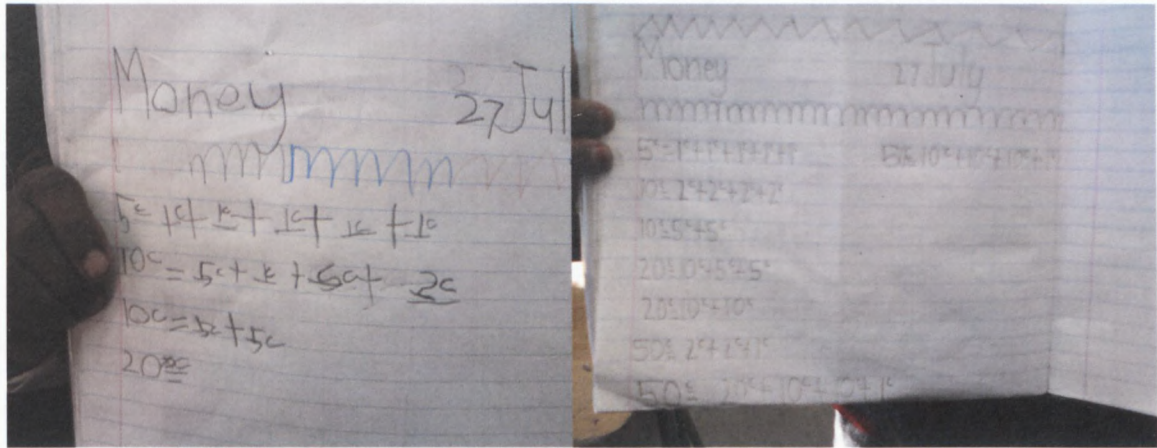 Money 27 Jul
5c= 1c+ 1c+ 1c+ 1c +1c
10c = 5c+ 1c + 5c+ 2c
10c=5c+5c
20c=
Money 27 July
5c=1c+1c+1c+1c+1c 50c=10c+10c+10c+
10c=2c+2c+2c+2c
10c=5c+5c
20c=10c+5c+5c
20c=10c+10c
50c= 2c+2c+1c
50c=